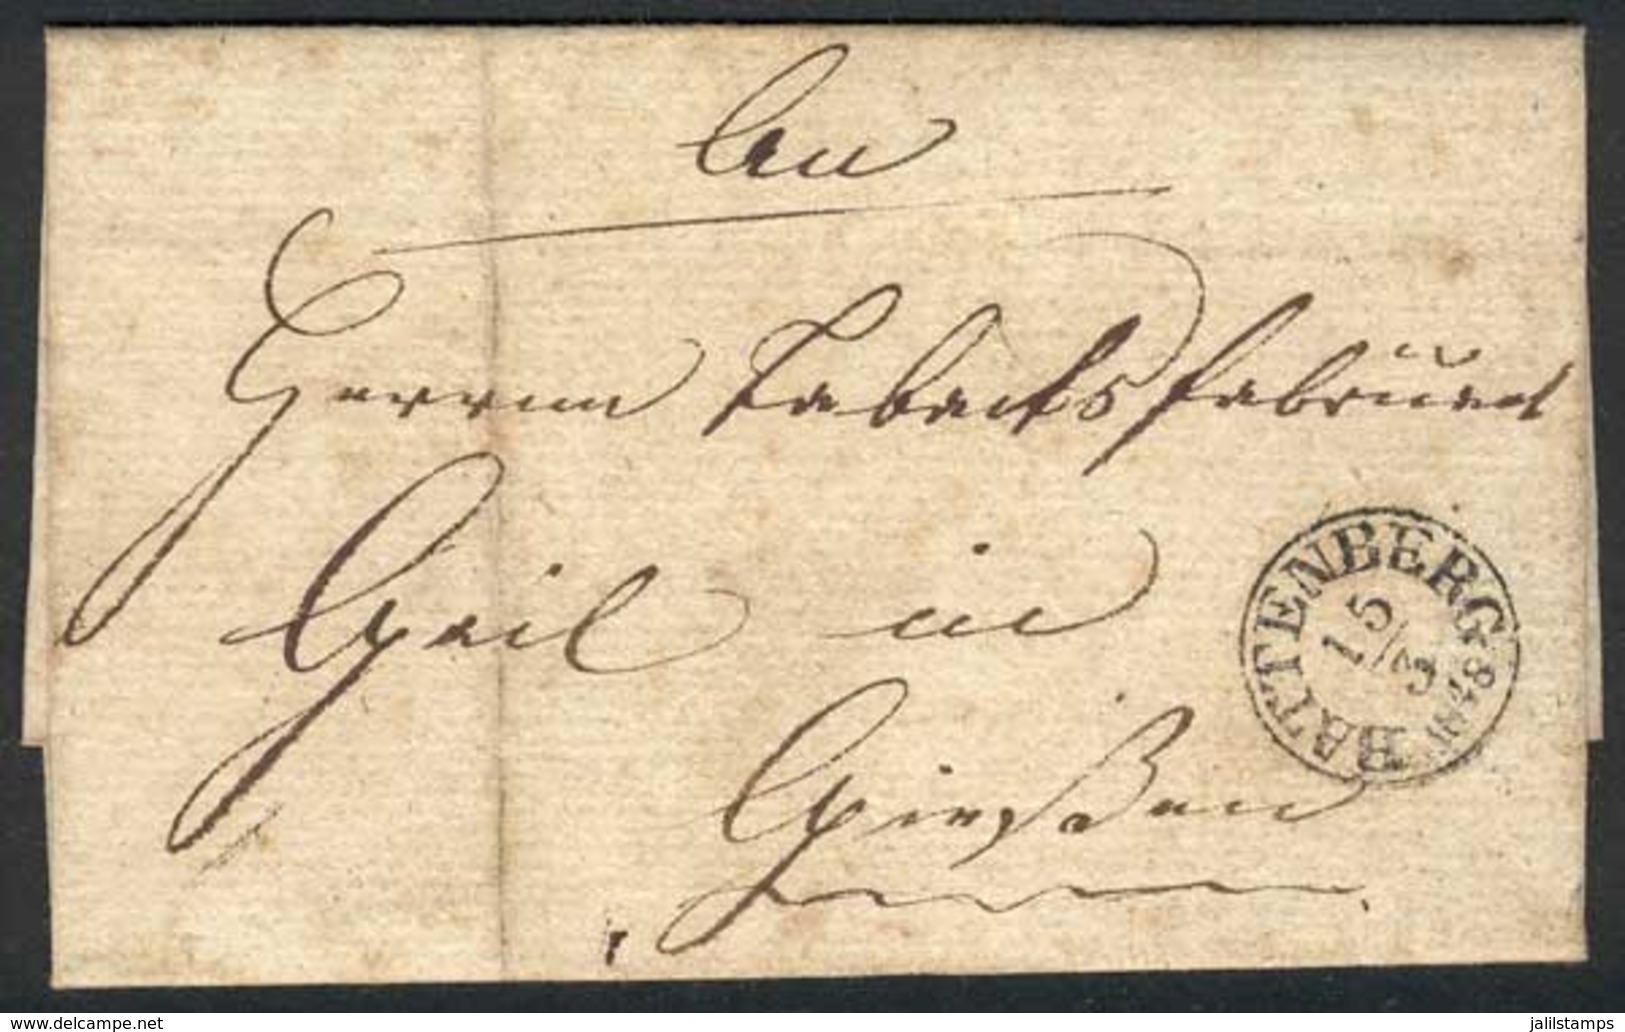 An
Herrn Tabacksfabrikant
Gail in
Gießen
BATTENBERG
15/3
1848
www.delcampe.net
jalilstamps